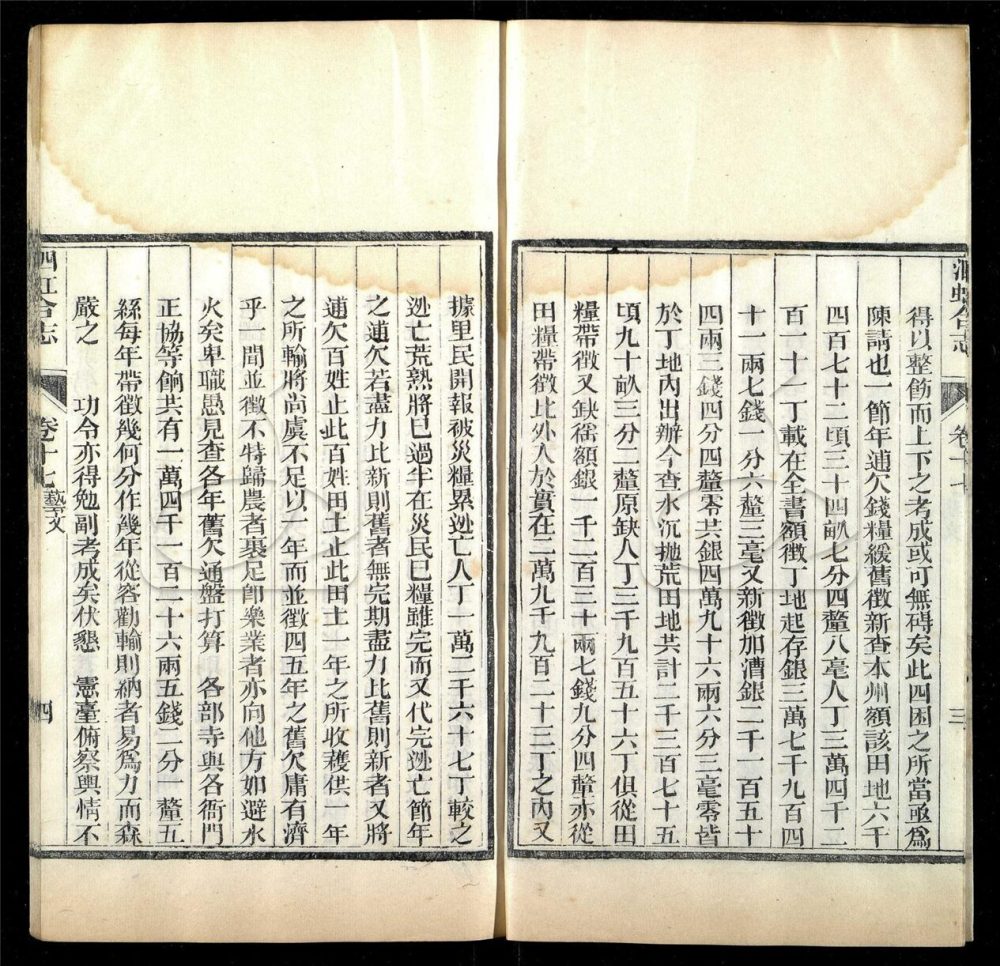 得以整飭而上下之考成或可無碍矣此四困之所當亟爲
陳請也一節年逋欠錢糧緩舊徵新查本州額該田地六千
四百七十二頃三十四畝七分四釐八毫人丁三萬四千二
百一十一丁載在全書額徵丁地起存銀三萬七千九百四
十一兩七錢一分六釐三毫又新徵加漕銀二千一百五十
四兩三錢四分四釐零共銀四萬九十六兩六分三毫零皆
於丁地內出辦今查水沉拋荒田地共計二千三百七十五
頃九十畝三分二釐原缺人丁三千九百五十六丁俱從田
糧帶徵又缺徭額銀一千二百三十兩七錢九分四釐亦從
田糧帶徵比外人於實在二萬九千九百二十三丁之內又
卷十七
三
據里民開報被災糧累逃亡人丁一萬二千六十七丁較之
逃亡荒熟將已過半在災民已糧雖完而又代完逃亡節年
之逋欠若盡力比新則舊者無完期盡力比舊則新者又將
逋欠百姓止此百姓田土止此田土一年之所收穫供一年
之所輸將尚虞不足以一年而並徵四五年之舊欠庸有濟
乎一間並徵不特歸農者裹足卽樂業者亦向他方如避水
火矣卑職愚見查各年舊欠通盤打算 各部寺與各衙門
正協等餉共有一萬四千一百二十六兩五錢二分一釐五
絲每年帶徵幾何分作幾年從容勸輸則納者易爲力而森
嚴之 功令亦得勉副考成矣伏懇 憲臺俯察輿情不
泗虹合志
卷十七 藝文
四